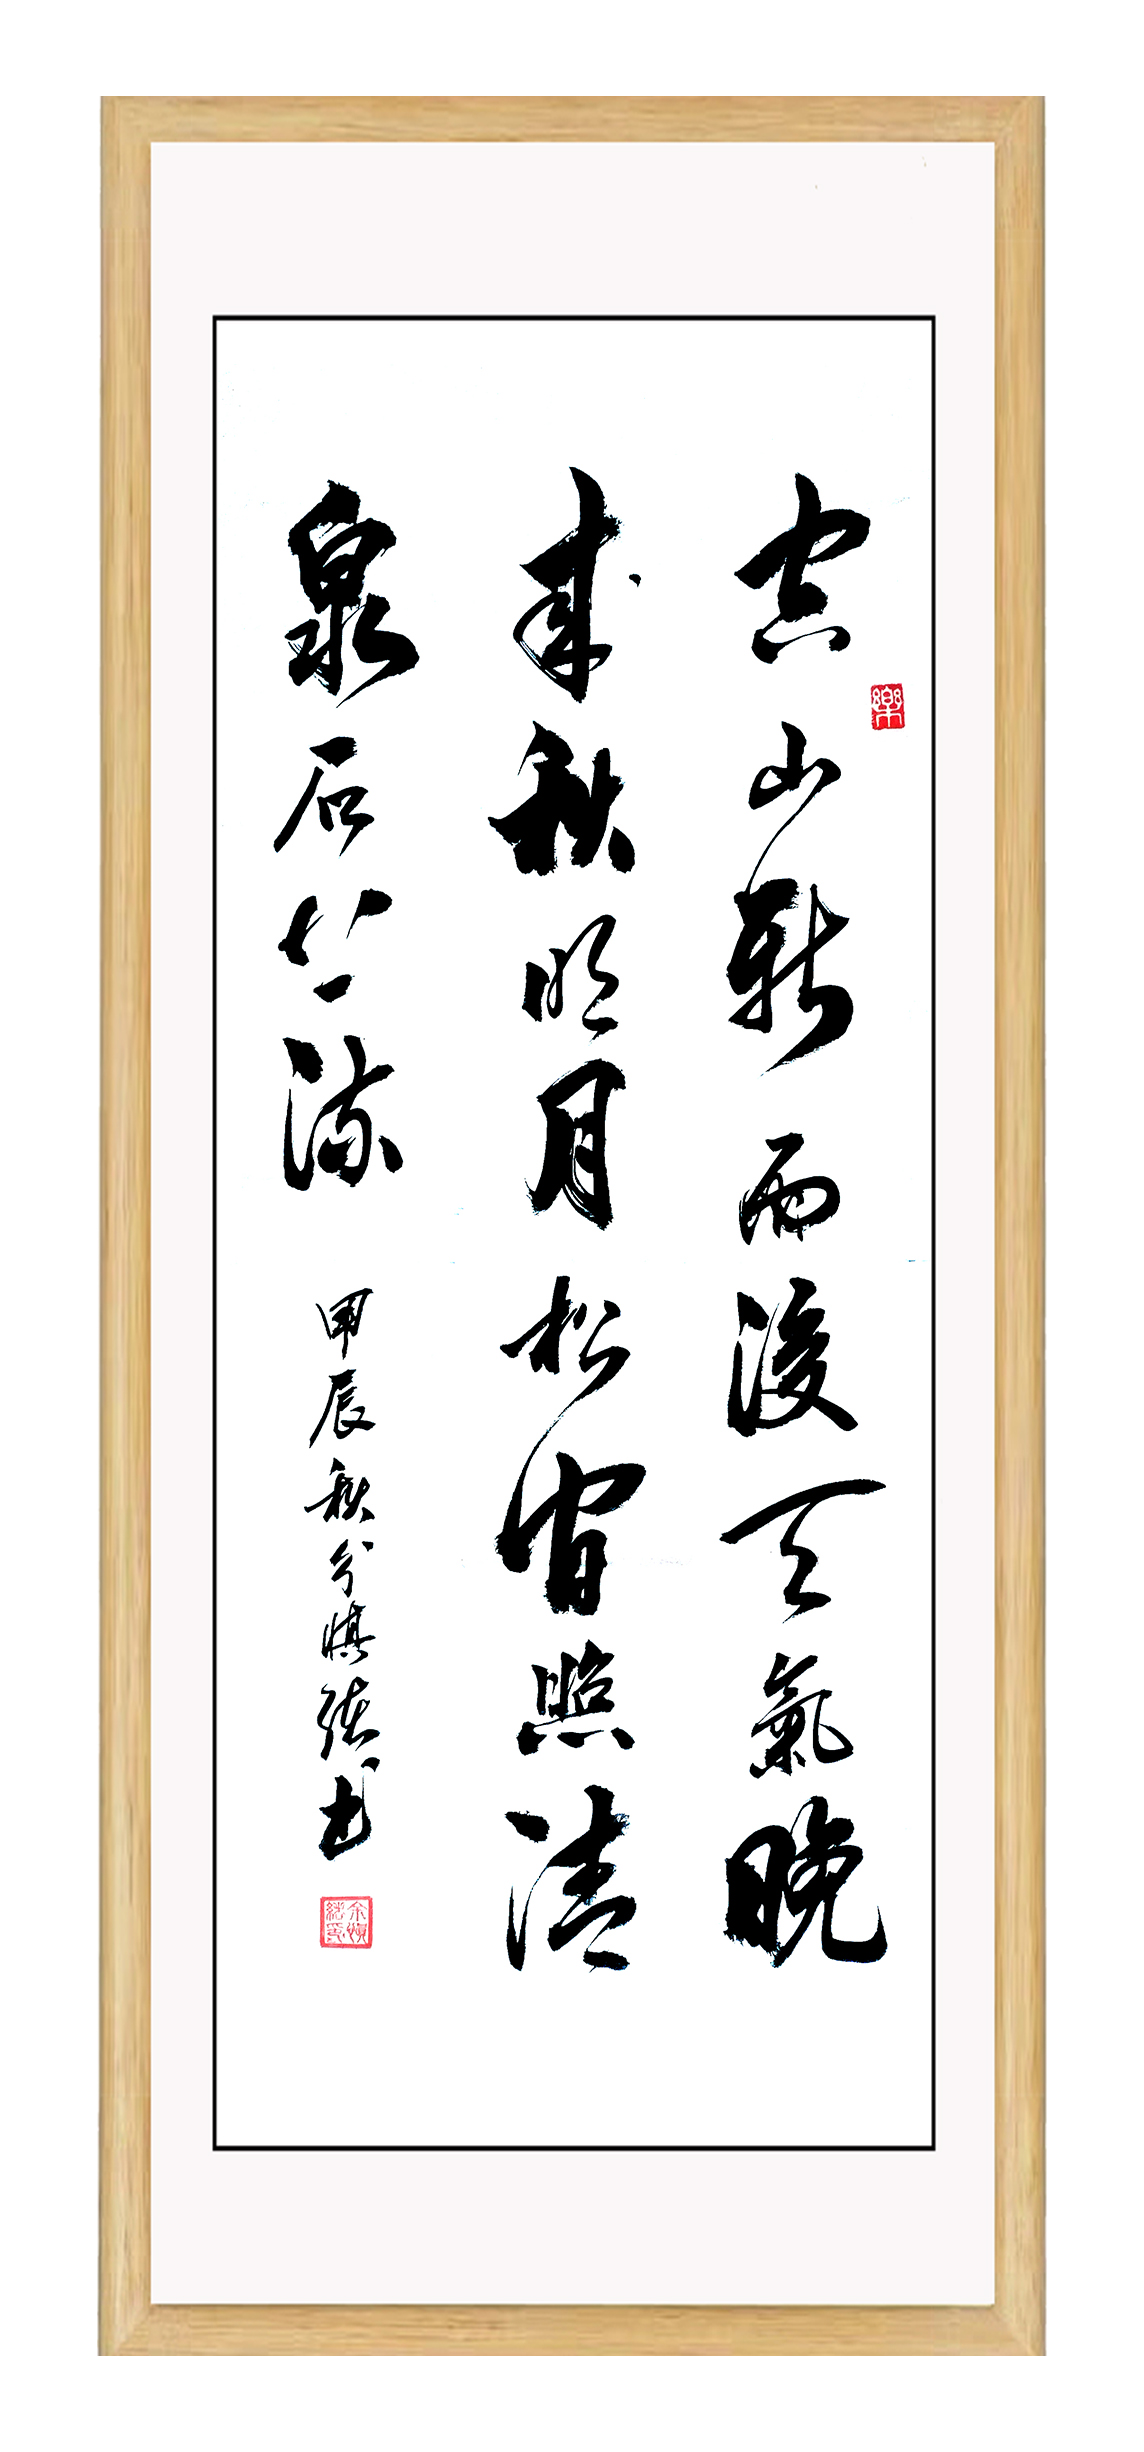 空山新雨後天氣晚
樂
来秋明月松間照清
泉石上流
甲辰秋分慎书
余慎印